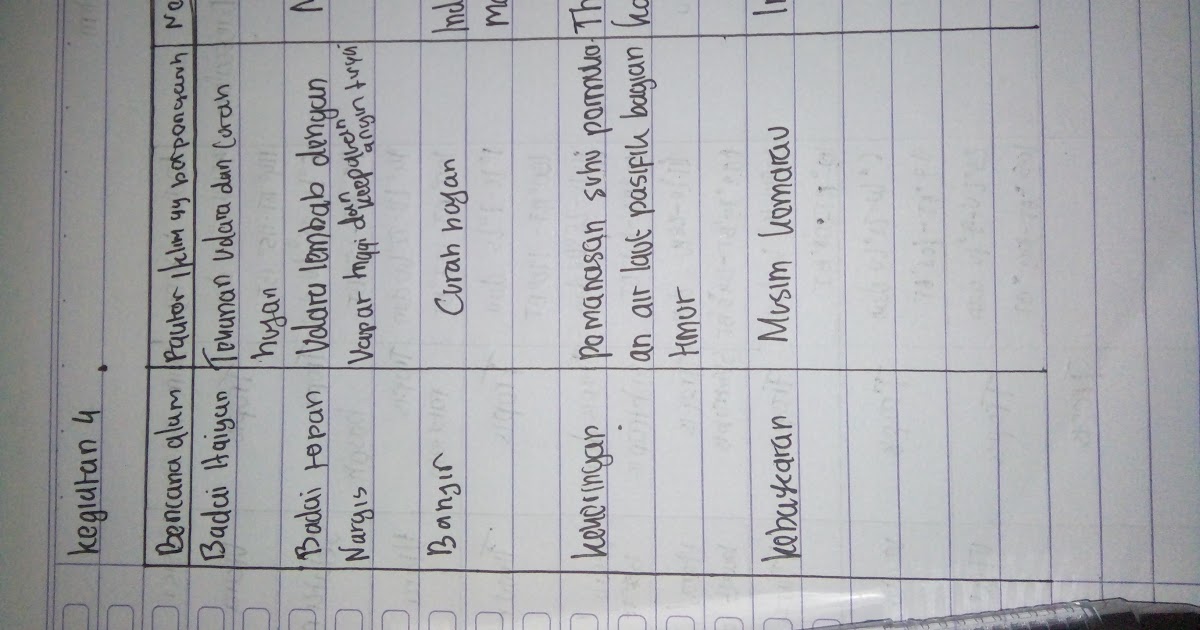 kegiatan 4
Bencana alam
Faktor iklim yg berpengaruh
Badai Haiyan
Tekanan udara dan curah
hujan
Badai topan
Nargis
Udara lembab dengan
Uap air tinggi dan kecepatan
angin tinggi
Banjir
Curah hujan
Ind
kekeringan
pemanasan suhu permuka
an air laut pasifik bagian
timur
Th
kebakaran
Musim kemarau